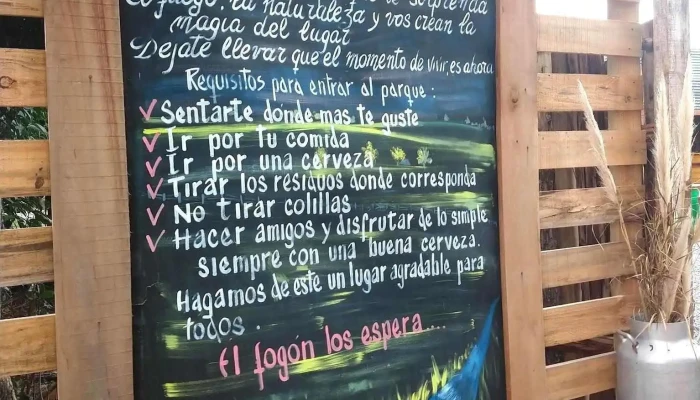 el fuego, la naturaleza y vos crean la
magia del lugar
Dejate llevar que el momento de vivir, es ahora
Requisitos para entrar al parque:
✓ Sentarte donde mas te guste
✓ Ir por tu comida
✓ Ir por una cerveza
✓ Tirar los residuos donde corresponda
✓ No tirar colillas
✓ Hacer amigos y disfrutar de lo simple
siempre con una buena cerveza.
Hagamos de este un lugar agradable para
todos.
El fogón los espera....